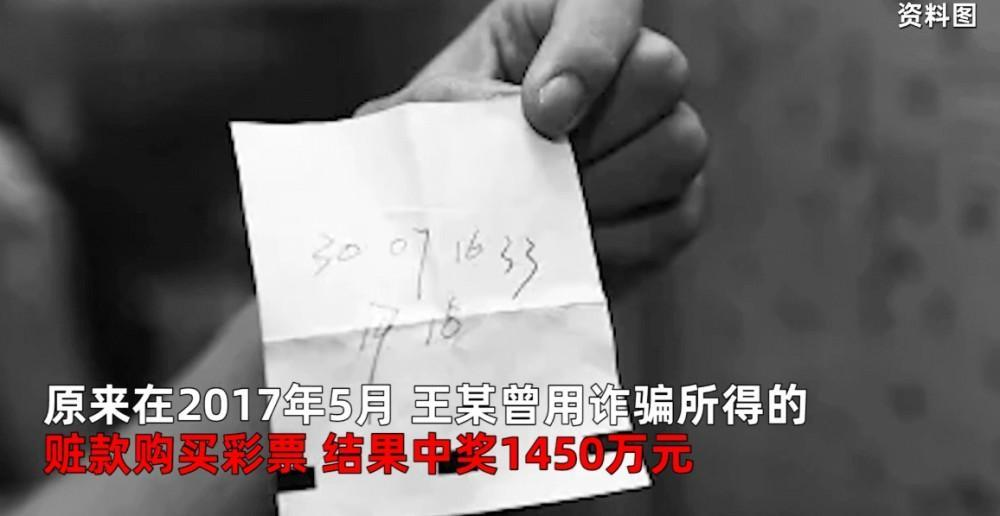 资料图
30 07 16 33
16
原来在2017年5月 王某曾用诈骗所得的
赃款购买彩票 结果中奖1450万元